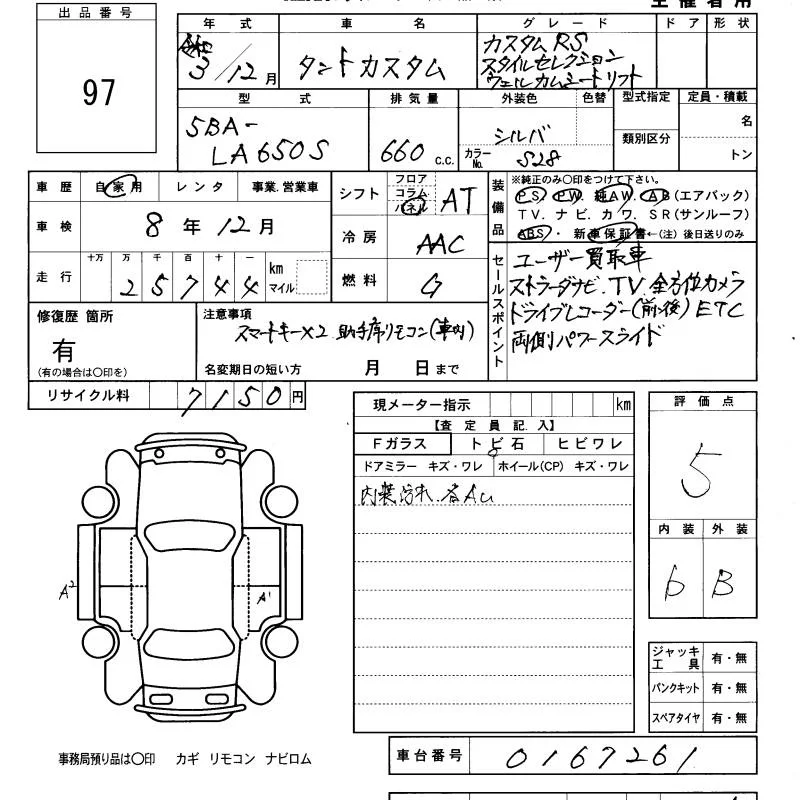 出品番号
97
年式 車名 グレード ドア 形状
3/12月 タントカスタム カスタムRS
スタイルセレクション
ウェルカムシートリフト
型式 排気量 外装色 色替 型式指定 定員・積載
5BA-
LA650S 660 c.c. シルバ
カラーNo. S28 類別区分 名
トン
車歴 自家用 レンタ 事業.営業車
車検 8年12月
走行 十万 万 千 百 十 一
25744 km マイル
シフト フロア コラム パネル AT
冷房 AAC
燃料 G
装備品 ※純正のみ○印をつけて下さい。
PS. PW. 純AW. AB(エアバック)
TV.ナビ.カワ.SR(サンルーフ)
ABS・新車保証書←(注)後日送りのみ
セールスポイント
ユーザー買取車
ストラーダナビ.TV 全方位カメラ
ドライブレコーダー(前後)ETC
両側パワースライド
修復歴 箇所
有
(有の場合は○印を)
注意事項
スマートキー×2 助手席リモコン(車内)
名変期日の短い方 月 日まで
リサイクル料 7150円
現メーター指示 km
【査定員記入】
Fガラス トビ石 ヒビワレ
ドアミラー キズ・ワレ ホイール(CP) キズ・ワレ
内装汚れ.各AU
評価点
5
内装 外装
b B
A2 A1
ジャッキ工具 有・無
パンクキット 有・無
スペアタイヤ 有・無
事務局預り品は○印 カギ リモコン ナビロム
車台番号 0167261